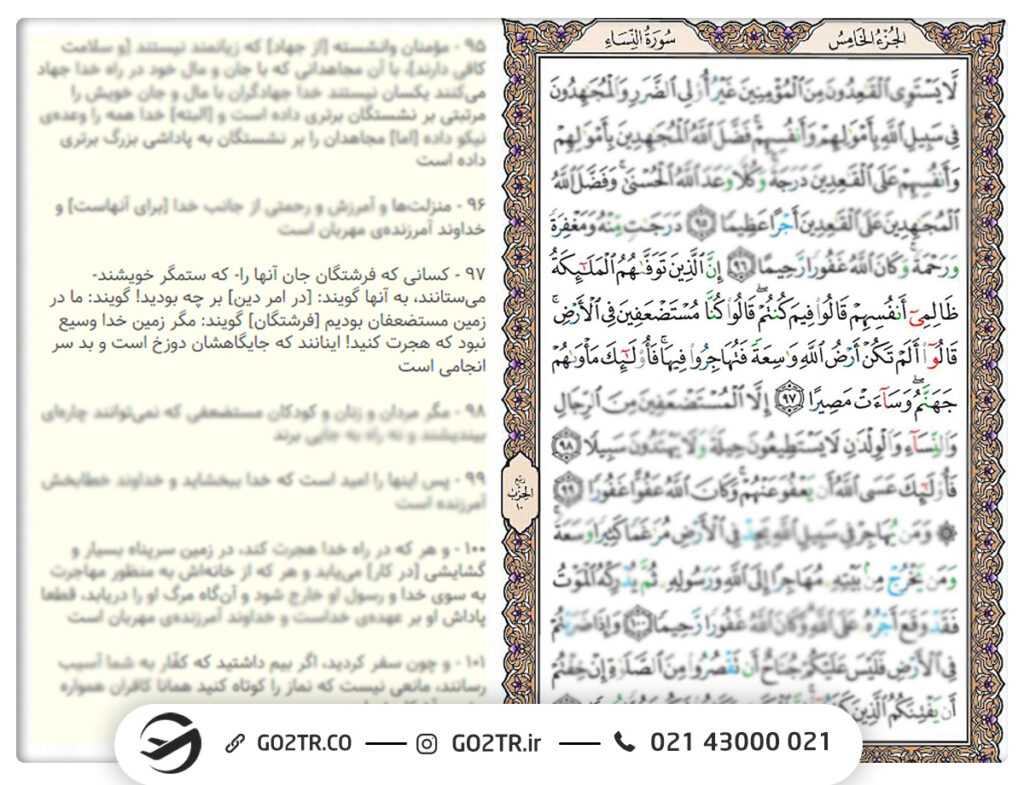 الجُزْءُ الخَامِسُ
سُورَةُ النِّسَاءِ
لَّا يَسْتَوِى ٱلْقَـٰعِدُونَ مِنَ ٱلْمُؤْمِنِينَ غَيْرُ أُو۟لِى ٱلضَّرَرِ وَٱلْمُجَـٰهِدُونَ
فِى سَبِيلِ ٱللَّهِ بِأَمْوَٰلِهِمْ وَأَنفُسِهِمْ ۚ فَضَّلَ ٱللَّهُ ٱلْمُجَـٰهِدِينَ بِأَمْوَٰلِهِمْ
وَأَنفُسِهِمْ عَلَى ٱلْقَـٰعِدِينَ دَرَجَةً ۚ وَكُلًّا وَعَدَ ٱللَّهُ ٱلْحُسْنَىٰ ۚ وَفَضَّلَ ٱللَّهُ
ٱلْمُجَـٰهِدِينَ عَلَى ٱلْقَـٰعِدِينَ أَجْرًا عَظِيمًا ﴿٩٥﴾ دَرَجَـٰتٍ مِّنْهُ وَمَغْفِرَةً
وَرَحْمَةً ۚ وَكَانَ ٱللَّهُ غَفُورًا رَّحِيمًا ﴿٩٦﴾ إِنَّ ٱلَّذِينَ تَوَفَّىٰهُمُ ٱلْمَلَـٰٓئِكَةُ
ظَالِمِىٓ أَنفُسِهِمْ قَالُوا۟ فِيمَ كُنتُمْ ۖ قَالُوا۟ كُنَّا مُسْتَضْعَفِينَ فِى ٱلْأَرْضِ ۚ
قَالُوٓا۟ أَلَمْ تَكُنْ أَرْضُ ٱللَّهِ وَٰسِعَةً فَتُهَاجِرُوا۟ فِيهَا ۚ فَأُو۟لَـٰٓئِكَ مَأْوَىٰهُمْ
جَهَنَّمُ ۖ وَسَآءَتْ مَصِيرًا ﴿٩٧﴾ إِلَّا ٱلْمُسْتَضْعَفِينَ مِنَ ٱلرِّجَالِ
وَٱلنِّسَآءِ وَٱلْوِلْدَٰنِ لَا يَسْتَطِيعُونَ حِيلَةً وَلَا يَهْتَدُونَ سَبِيلًا ﴿٩٨﴾
فَأُو۟لَـٰٓئِكَ عَسَى ٱللَّهُ أَن يَعْفُوَ عَنْهُمْ ۚ وَكَانَ ٱللَّهُ عَفُوًّا غَفُورًا ﴿٩٩﴾
۞ وَمَن يُهَاجِرْ فِى سَبِيلِ ٱللَّهِ يَجِدْ فِى ٱلْأَرْضِ مُرَٰغَمًا كَثِيرًا وَسَعَةً ۚ
وَمَن يَخْرُجْ مِنۢ بَيْتِهِۦ مُهَاجِرًا إِلَى ٱللَّهِ وَرَسُولِهِۦ ثُمَّ يُدْرِكْهُ ٱلْمَوْتُ
فَقَدْ وَقَعَ أَجْرُهُۥ عَلَى ٱللَّهِ ۗ وَكَانَ ٱللَّهُ غَفُورًا رَّحِيمًا ﴿١٠٠﴾ وَإِذَا ضَرَبْتُمْ
فِى ٱلْأَرْضِ فَلَيْسَ عَلَيْكُمْ جُنَاحٌ أَن تَقْصُرُوا۟ مِنَ ٱلصَّلَوٰةِ إِنْ خِفْتُمْ
أَن يَفْتِنَكُمُ ٱلَّذِينَ
رُبْع
الحِزْب
١٠
۹۵ - مؤمنان وانشسته [از جهاد] که زیانمند نیستند [و سلامت
کافی دارند]، با آن مجاهدانی که با جان و مال خود در راه خدا جهاد
می‌کنند یکسان نیستند خدا جهادگران با مال و جان خویش را
مرتبتی بر نشستگان برتری داده است و [البته] خدا همه را وعده‌ی
نیکو داده [اما] مجاهدان را بر نشستگان به پاداشی بزرگ برتری
داده است
۹۶ - منزلت‌ها و آمرزش و رحمتی از جانب خدا [برای آنهاست] و
خداوند آمرزنده‌ی مهربان است
۹۷ - کسانی که فرشتگان جان آنها را- که ستمگر خویشند-
می‌ستانند، به آنها گویند: [در امر دین] بر چه بودید! گویند: ما در
زمین مستضعفان بودیم [فرشتگان] گویند: مگر زمین خدا وسیع
نبود که هجرت کنید! اینانند که جایگاهشان دوزخ است و بد سر
انجامی است
۹۸ - مگر مردان و زنان و کودکان مستضعفی که نمی‌توانند چاره‌ای
بیندیشند و نه راه به جایی برند
۹۹ - پس اینها را امید است که خدا ببخشاید و خداوند خطابخش
آمرزنده است
۱۰۰ - و هر که در راه خدا هجرت کند، در زمین سرپناه بسیار و
گشایشی [در کار] می‌یابد و هر که از خانه‌اش به منظور مهاجرت
به سوی خدا و رسول او خارج شود و آن‌گاه مرگ او را دریابد، قطعا
پاداش او بر عهده‌ی خداست و خداوند آمرزنده‌ی مهربان است
۱۰۱ - و چون سفر کردید، اگر بیم داشتید که کفّار به شما آسیب
رسانند، مانعی نیست که نماز را کوتاه کنید همانا کافران همواره
GO2TR.CO — GO2TR.ir — 021 43000 021